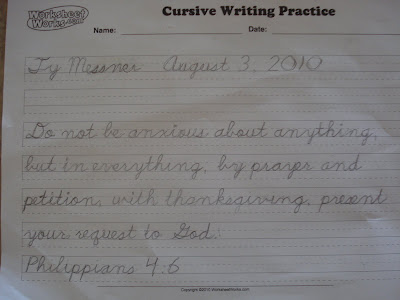 Worksheet Works.com
Cursive Writing Practice
Name: Date:
Ty Messner August 3, 2010
Do not be anxious about anything,
but in everything, by prayer and
petition, with thanksgiving, present
your request to God.
Philippians 4:6
Copyright ©2010 WorksheetWorks.com